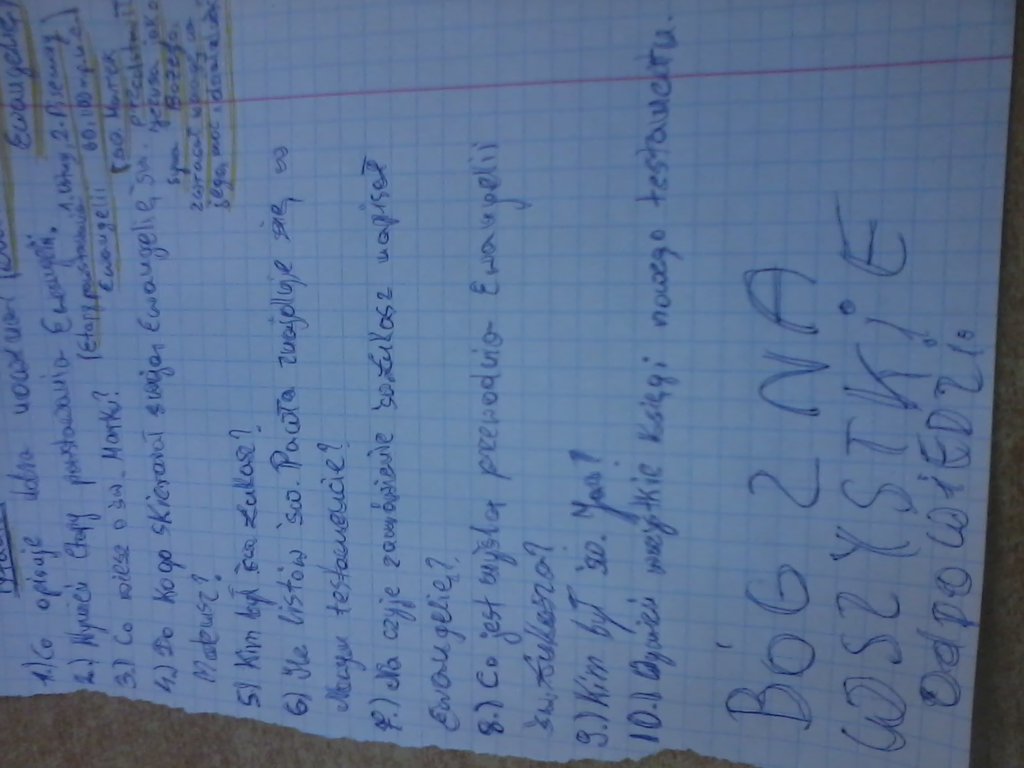 1.) Co opisuje Ewangelię
2.) Wymień etapy powstawania Ewangelii. 1. ustny, 2. Pisemny
(Etap powstawania Ewangelii
3.) Co wiesz o św. Marku?
4.) Do kogo skierował swoją Ewangelię św.
Mateusz?
Syna Bożego.
5) Kim był św Łukasz?
6) Ile listów św. Pawła znajduje się w
Nowym testamencie?
7.) Na czyje zamówienie św Łukasz napisał
Ewangelię?
8.) Co jest myślą przewodnią Ewangelii
św. Łukasza?
9.) Kim był św. Jan?
10.) Wymień wszystkie Księgi nowego testamentu.
BÓG ZNA
WSZYSTKIE
OdpowiEDZI.